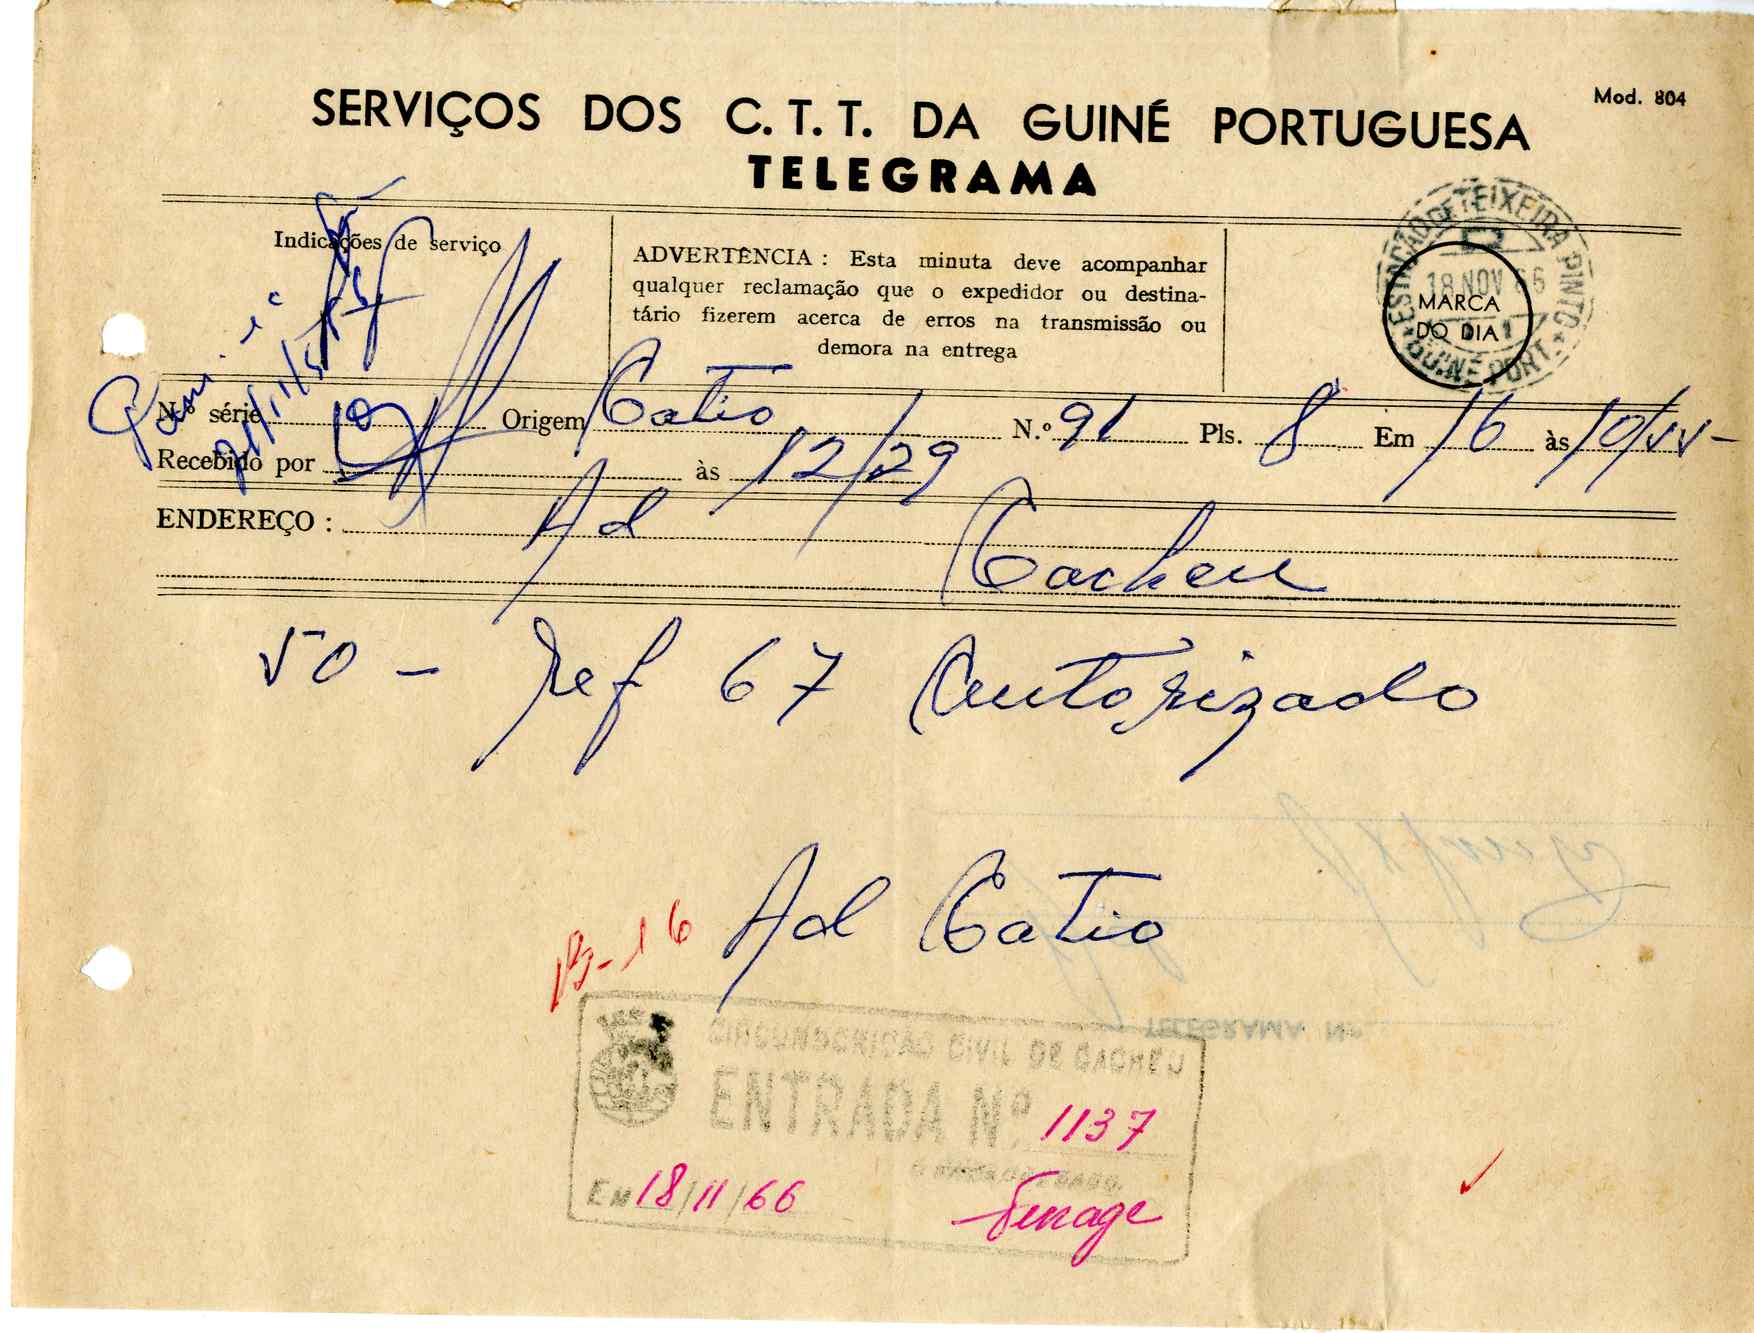 Mod. 804
SERVIÇOS DOS C. T. T. DA GUINÉ PORTUGUESA
TELEGRAMA
Indicações de serviço
ADVERTÊNCIA : Esta minuta deve acompanhar
qualquer reclamação que o expedidor ou destina-
tário fizerem acerca de erros na transmissão ou
demora na entrega
ESTAÇÃO DE TEIXEIRA PINTO
18 NOV 66
MARCA
DO DIA
GUINÉ PORT.
N.º série Origem Catió N.º 91 Pls. 8 Em 16 às 10/55
Recebido por às 12/29
ENDEREÇO : Ad
Cacheu
50 - ref 67 Autorizado
Ad Catió
B-16
TELEGRAMA N.º
CIRCUNSCRIÇÃO CIVIL DE CACHEU
ENTRADA Nº 1137
O ENCARREGADO,
EM 18/11/66